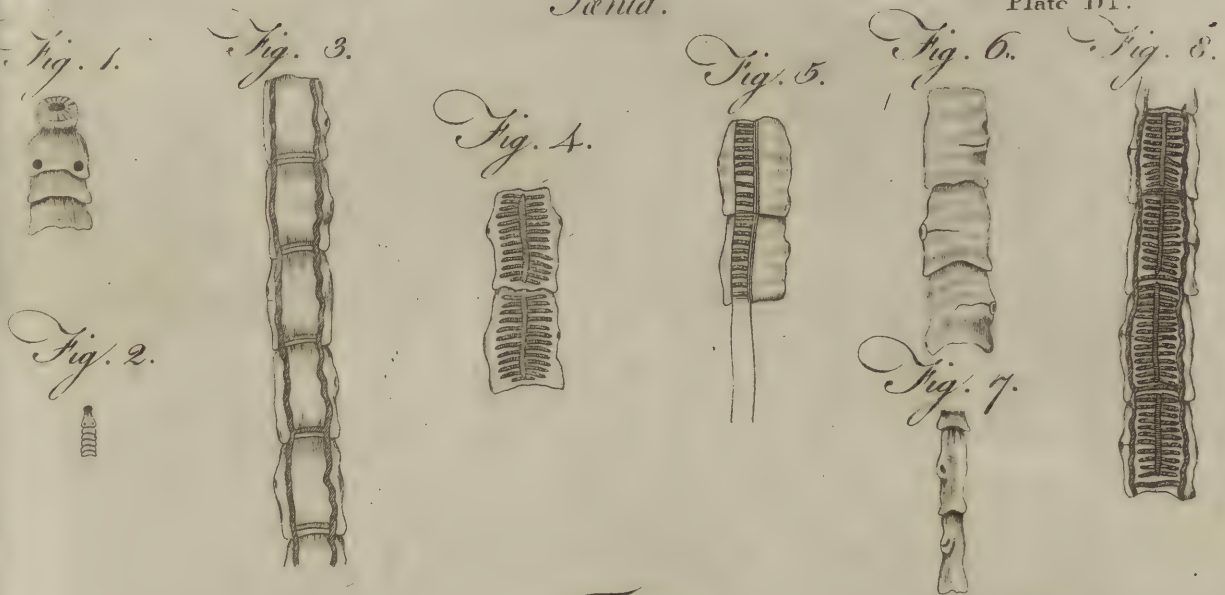 Tænia.
Plate DI.
Fig. 1.
Fig. 3.
Fig. 4.
Fig. 5.
Fig. 6.
Fig. 8.
Fig. 2.
Fig. 7.